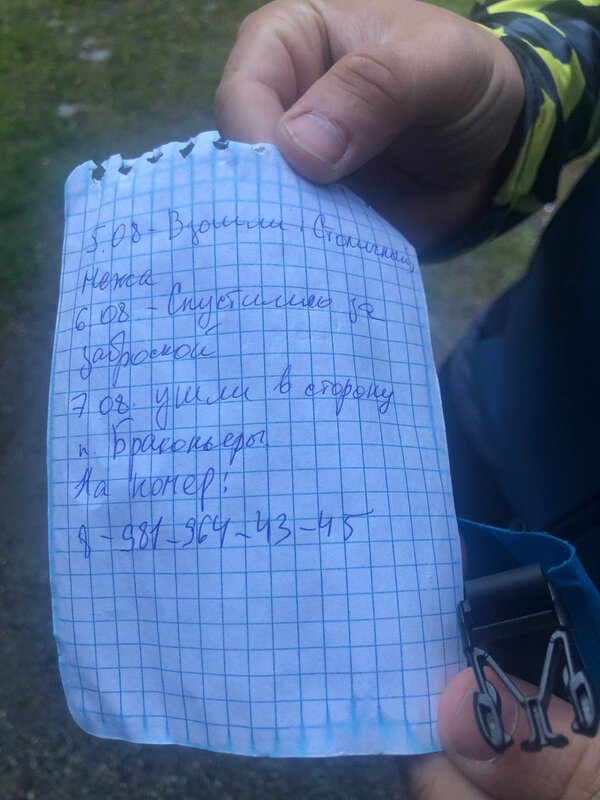 5.08 - Взошли: Столичный,
Нежа
6.08 - Спустились за
заброской
7.08. ушли в сторону
п. Браконьеры.
На конер!
8-981-964-43-45